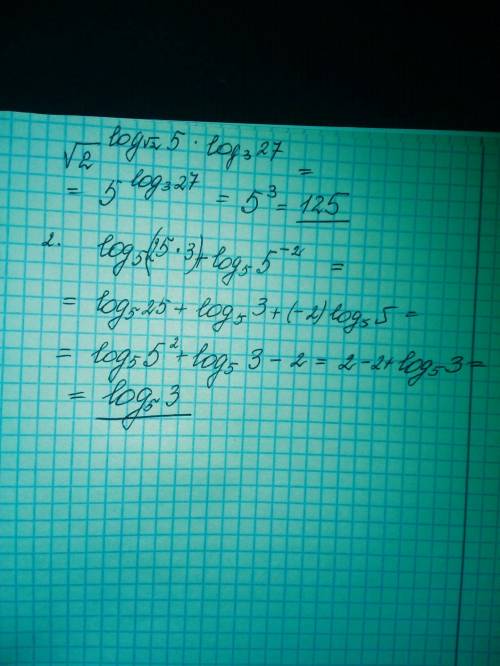 √2^(log_√2 5 · log_3 27) =
= 5^(log_3 27) = 5^3 = 125
2. log_5(25·3) + log_5 5^-2 =
= log_5 25 + log_5 3 + (-2) log_5 5 =
= log_5 5^2 + log_5 3 - 2 = 2 - 2 + log_5 3 =
= log_5 3